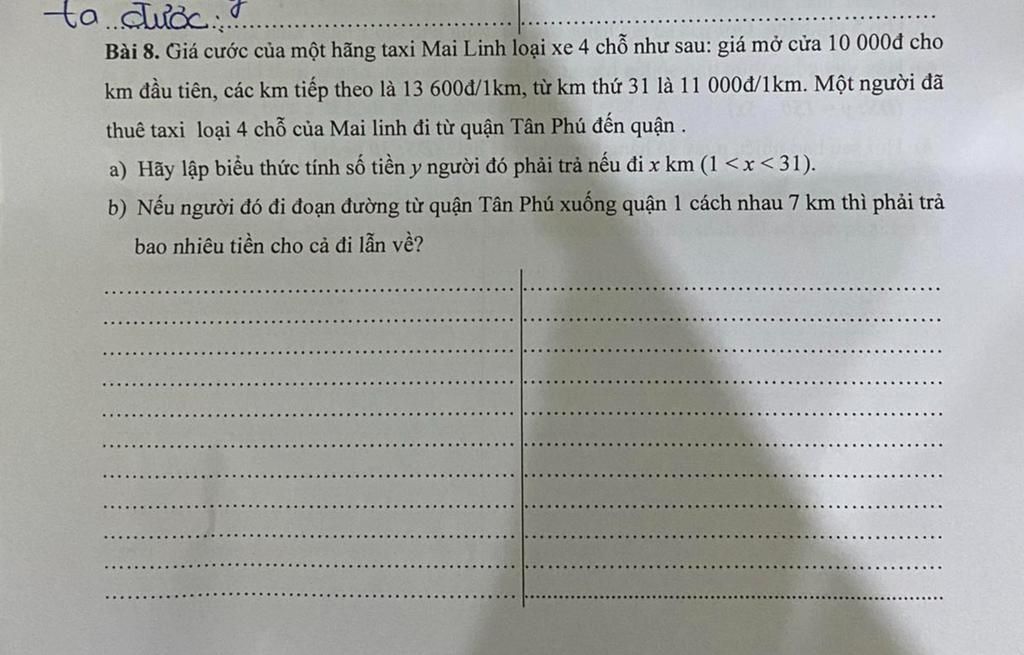 ta được:
Bài 8. Giá cước của một hãng taxi Mai Linh loại xe 4 chỗ như sau: giá mở cửa 10 000đ cho
km đầu tiên, các km tiếp theo là 13 600đ/1km, từ km thứ 31 là 11 000đ/1km. Một người đã
thuê taxi loại 4 chỗ của Mai linh đi từ quận Tân Phú đến quận .
a) Hãy lập biểu thức tính số tiền y người đó phải trả nếu đi x km (1 < x < 31).
b) Nếu người đó đi đoạn đường từ quận Tân Phú xuống quận 1 cách nhau 7 km thì phải trả
bao nhiêu tiền cho cả đi lẫn về?